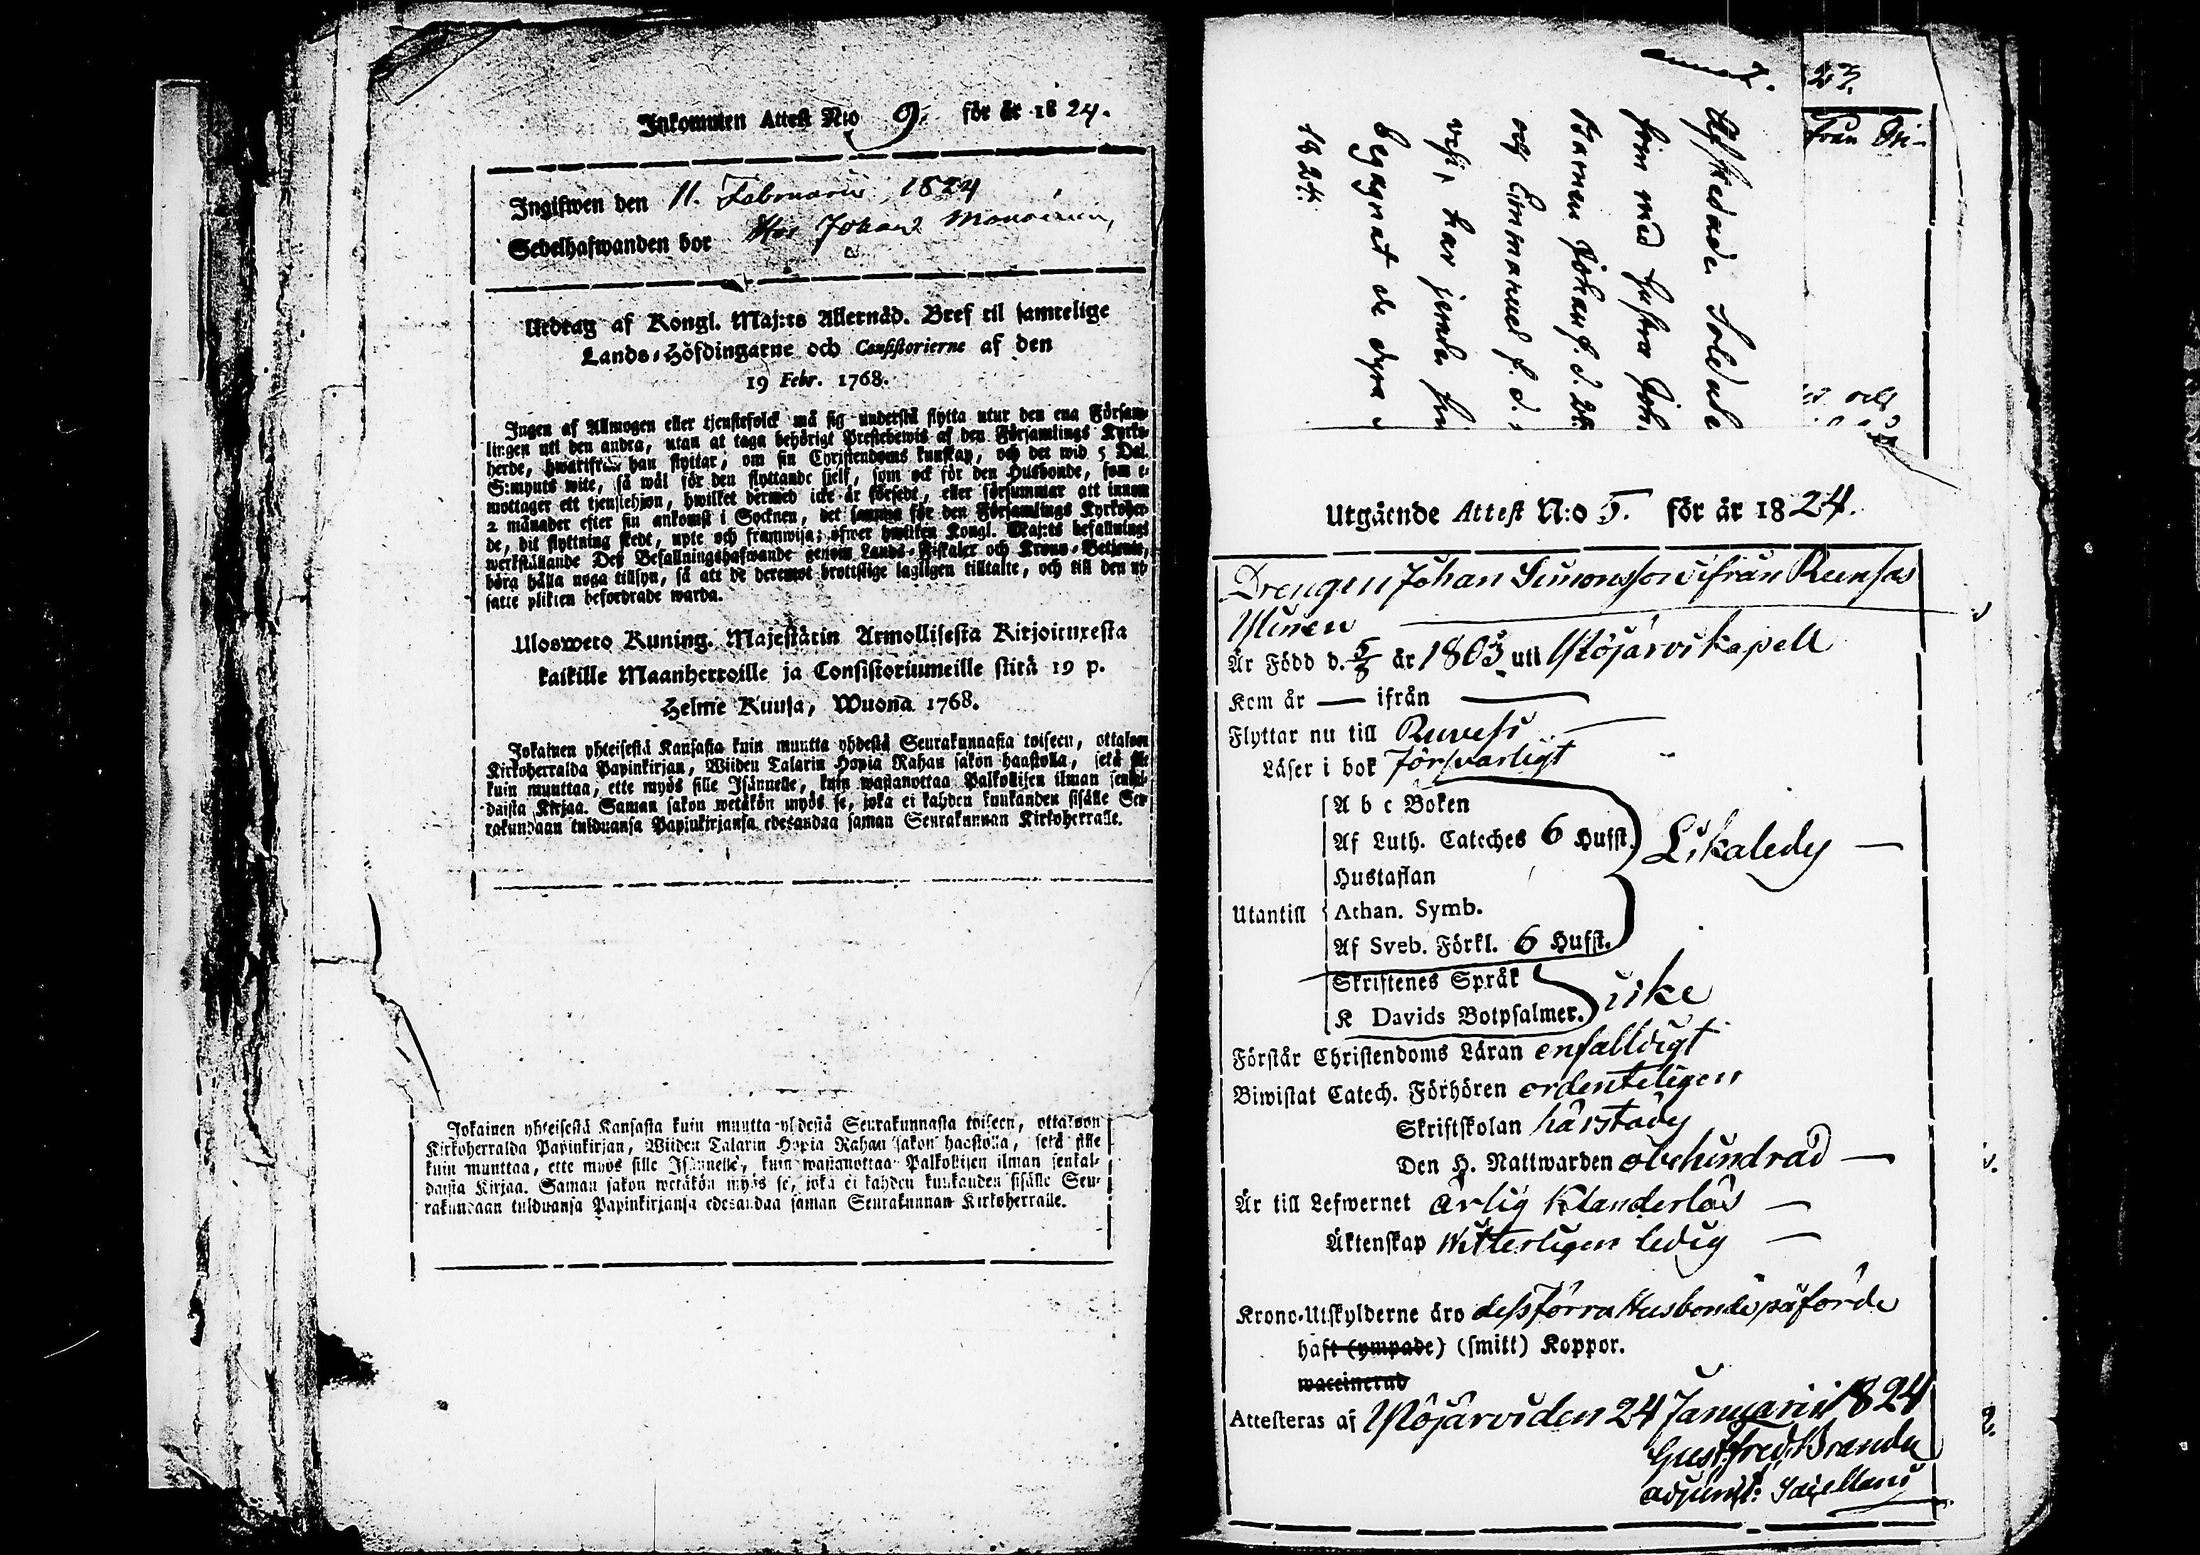 Inkommen Attest N:o 9. för år 1824.
Ingifwen den 11. Februarii 1824
Sedelhafwanden bor Hos Johan
Utdrag af Kongl. Maj:ts Allernåd. Bref til samtelige
Lands-Höfdingarne och Consistorierne af den
19 Febr. 1768.
Ingen af Allmogen eller tjenstefolck må sig understå flytta utur den ena Försam-
lingen uti den andra, utan at taga behörigt Prestebewis af den Församlings Kyrko-
herde, hwarifrån han flyttar, om sin Christendoms kunskap, och det wid 5 Dal.
S:mynts wite, så wäl för den flyttande sielf, som ock för den Husbonde, som e-
mottager ett tjenstehjon, hwilket dermed icke är försedt, eller försummar att innom
2 månader efter sin ankomst i Socknen, det samma för den Församlings Kyrkoher-
de, dit flyttning skedt, upte och framwisa; öfwer hwilken Kongl. Maj:ts befallnings
werkställande Deß Befallningshafwande genom Lands-Fiskaler och Krono-Betjente,
böra hålla noga tillsyn, så att de deremot brottslige lagligen tilltalte, och till den ut-
satte plikten befordrade warda.
Ulosweto Kuning. Majestätin Armollisesta Kirjoituxesta
kaikille Maanherroille ja Consistoriumeille siitä 19 p.
Helme Kuusa, Wuona 1768.
Jokainen yhteisestä Kansasta kuin muutta yhdestä Seurakunnasta toiseen, ottakoon
Kirkoherralda Papinkirjan, Wiiden Talarin Hopia Rahan sakon haastolla, sekä sille
kuin muuttaa, ette myös sille Isännelle, kuin wastanottaa Palkollisen ilman senkal-
daista Kirjaa. Saman sakon wetäkön myös se, joka ei kahden kuukauden sisälle Seu-
rakundaan tulduansa Papinkirjansa edesandaa saman Seurakunnan Kirkoherralle.
Jokainen yhteisestä Kansasta kuin muutta yhdestä Seurakunnasta toiseen, ottakoon
Kirkoherralda Papinkirjan, Wiiden Talarin Hopia Rahan sakon haastolla, sekä sille
kuin muuttaa, ette myös sille Isännelle, kuin wastanottaa Palkollisen ilman senkal-
daista Kirjaa. Saman sakon wetäkön myös se, joka ei kahden kuukauden sisälle Seu-
rakundaan tulduansa Papinkirjansa edesandaa saman Seurakunnan Kirkoherralle.
23.
från
Afskedade Soldate
med hustru Joh.
Barnen Johan f. d. 28
och Emmanuel f. d.
har jemte
begagnat de dyra
1824.
Utgående Attest N:o 5. för år 1824.
Drengen Johan Simonsson ifrån Reinsas
Minen
Är Född d. 5/8 år 1803 uti Ylöjärvi kapell
Kom år — ifrån —
Flyttar nu till Ruovesi
Läser i bok Försvarligt
A b c Boken
Af Luth. Cateches 6 Hufst. Likaledy —
Hustaflan
Utantill Athan. Symb.
Af Sveb. Förkl. 6 Hufst.
Skriftenes Språk icke
K Davids Botpsalmer.
Förstår Christendoms Läran enfalldigt
Biwistat Catech. Förhören ordenteligen
Skriftskolan härstädy
Den H. Nattwarden obehindrad —
Är till Lefwernet ärlig Klanderlös —
Äktenskap Witterligen ledig —
Krono-Utskylderne äro dess förra Husbonde påförde
haft (ympade) (smitt) Koppor.
waccinerad
Attesteras af Ylöjärvi den 24 Januarii 1824
Gust: fred: Brander
adjunct: Sacellans